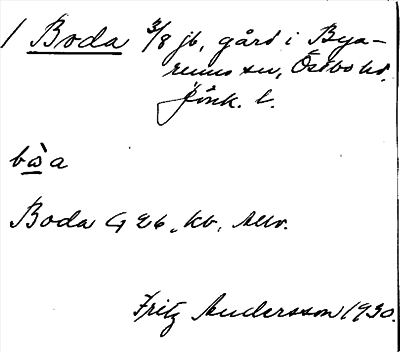 1 Boda 3/8 jb, gård i Bya-
rums sn, Östbo hd.
Jönk. l.
bòa
Boda G 26, kb,
Fritz Andersson 1930.